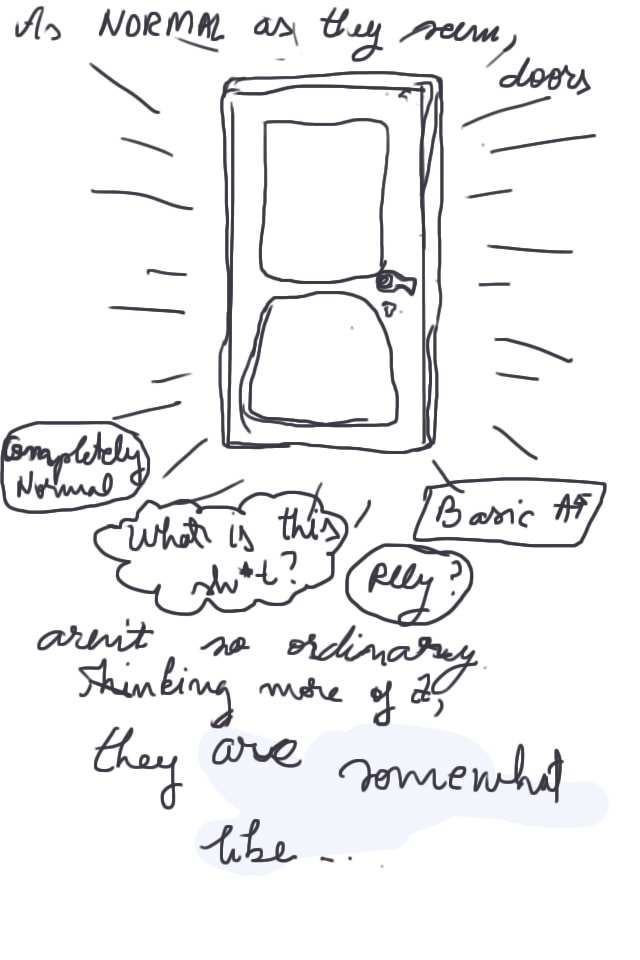 As NORMAL as they seem,
doors
Completely
Normal
What is this
sh*t?
Basic Af
Rlly?
aren't so ordinary
thinking more of it,
they are somewhat
like...